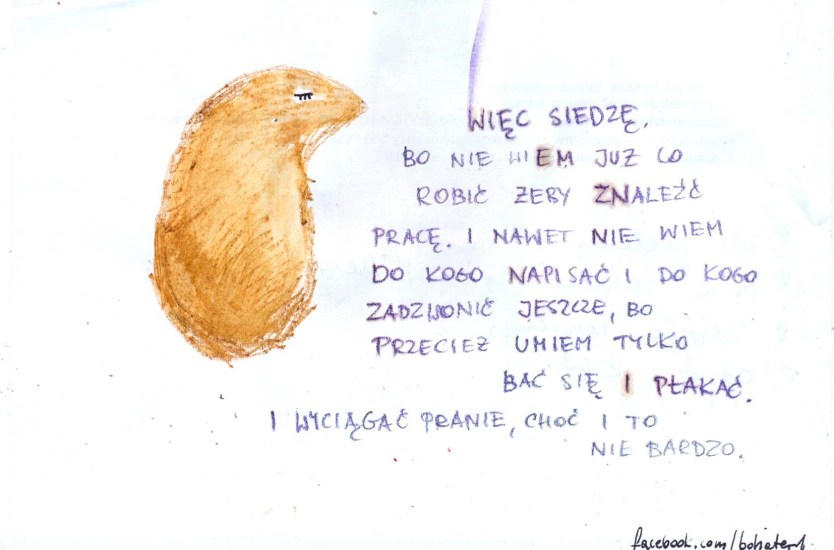 WIĘC SIEDZĘ.
BO NIE WIEM JUŻ CO
ROBIĆ ŻEBY ZNALEŹĆ
PRACĘ. I NAWET NIE WIEM
DO KOGO NAPISAĆ I DO KOGO
ZADZWONIĆ JESZCZE, BO
PRZECIEŻ UMIEM TYLKO
BAĆ SIĘ I PŁAKAĆ.
I WYCIĄGAĆ PRANIE, CHOĆ I TO
NIE BARDZO.